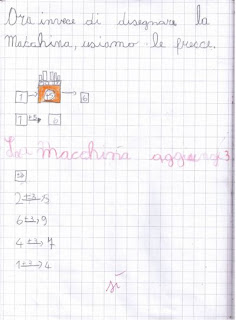 Ora invece di disegnare la
macchina, usiamo le frecce.
1 → → 6
1 +5→ 6
La macchina aggiungi 3
+3
2 +3→ 5
6 +3→ 9
4 +3→ 7
1 +3→ 4
sì